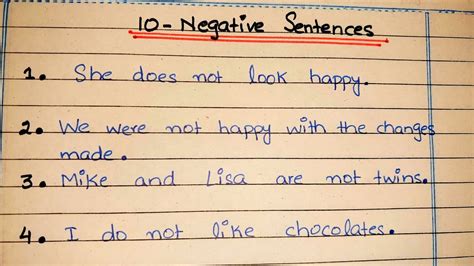 10- Negative Sentences
1. She does not look happy.
2. We were not happy with the changes
made.
3. Mike and Lisa are not twins.
4. I do not like chocolates.